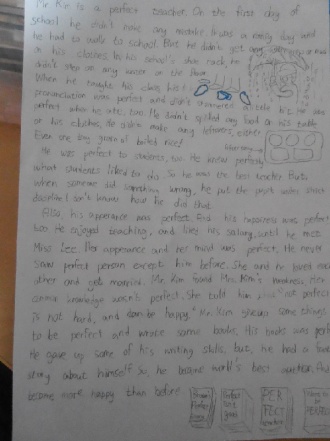 Mr Kim is a perfect teacher. On the first day of
school he didn't make any mistake. It was a rainy day and
he had to walk to school. But he didn't get any
in his clothes. In his school's shoe rack, he
didn't any water on the floor.
When he taught his class, his
pronunciation was perfect and didn't stammered a little bit. He was
perfect when he ate, too. He didn't spilled any food on his table
or his clothes. He didn't make any leftovers, either.
Even one tiny grain of boiled rice!
He was perfect to students, too. He knew perfectly
what students liked to do. So he was the best teacher. But
when someone did something wrong, he put the point
don't know how he did that.
Also, his appearance was perfect. Even his happiness was perfect
too. He enjoyed teaching, and likes his salary, until he met
Miss Lee. Her appearance and her mind was perfect. He never
saw perfect person except him before. She and he loved each
other and got married. Mr. Kim found Mrs. Kim's madness. Her
common knowledge wasn't perfect. She told him not perfect
is not hard, and can be happy. Mr. Kim gives up some things
to be perfect and wrote some books. His books was perfect
He gave up some of his writing skills, but, he had a
story about himself. So, he became world's best author. And
became more happy than before
Perfect
isn't
good
PER
FECT
teacher